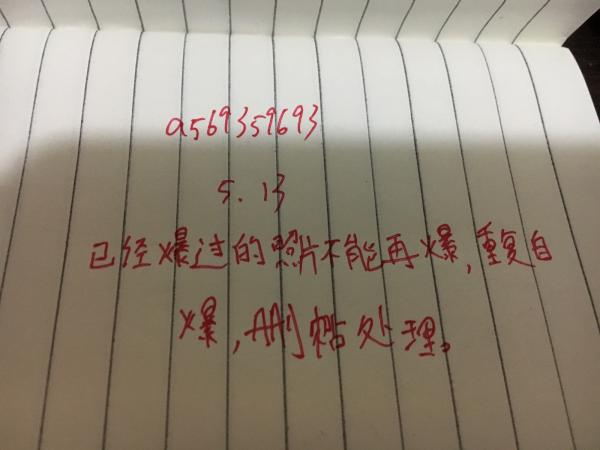 a569359693
5.13
已经爆过的照片不能再爆,重复自
爆,删帖处理。